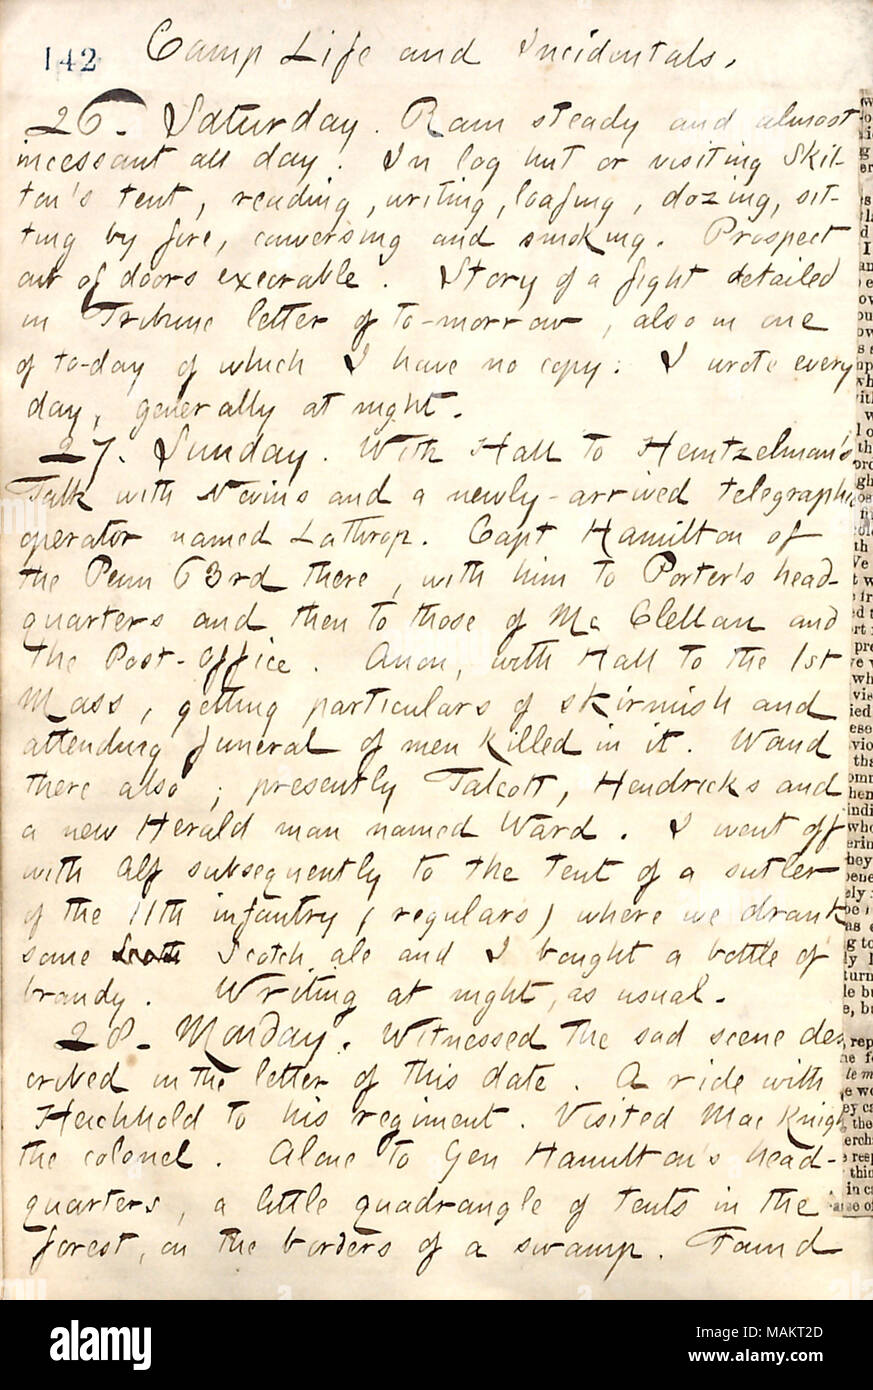 142 Camp Life and Incidentals.
26. Saturday. Rain steady and almost
incessant all day. In log hut or visiting Skil-
ton's tent, reading, writing, loafing, dozing, sit-
ting by fire, conversing and smoking. Prospect
out of doors execrable. Story of a fight detailed
in Tribune letter of to-morrow, also in one
of to-day of which I have no copy. I wrote every
day, generally at night.
27. Sunday. With Hall to Heintzelman's
Talk with Nevins and a newly-arrived telegraphic
operator named Lathrop. Capt Hamilton of
the Penn 63rd there, with him to Porter's head-
quarters and then to those of Mc Clellan and
the Post-Office. Anon, with Hall to the 1st
Mass, getting particulars of skirmish and
attending funeral of men killed in it. Waud
there also; presently Talcott, Hendricks and
a new Herald man named Ward. I went off
with Alf subsequently to the tent of a sutler
of the 11th infantry (regulars) where we drank
some Scotch ale and I bought a bottle of
brandy. Writing at night, as usual.
28. Monday. Witnessed the sad scene des-
cribed in the letter of this date. A ride with
Heichhold to his regiment. Visited MacKnigh
the colonel. Alone to Gen Hamilton's head-
quarters, a little quadrangle of tents in the
forest, on the borders of a swamp. Found
alamy
Image ID: MAKT2D
www.alamy.com